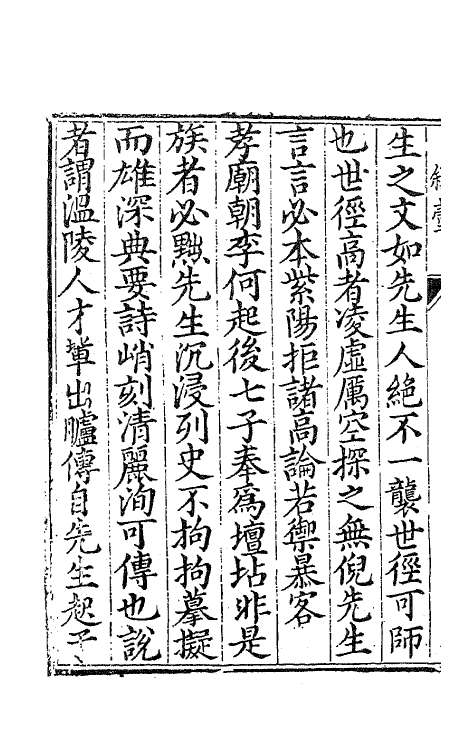 生之文如先生人絕不一襲世徑可師
也世徑高者凌虛厲空探之無倪先生
言言必本紫陽拒諸高論若禦暴客
孝廟朝李何起後七子奉爲壇坫非是
族者必黜先生沉浸列史不拘拘摹擬
而雄深典要詩峭刻清麗洵可傳也說
者謂溫陵人才輩出臚傳自先生起予